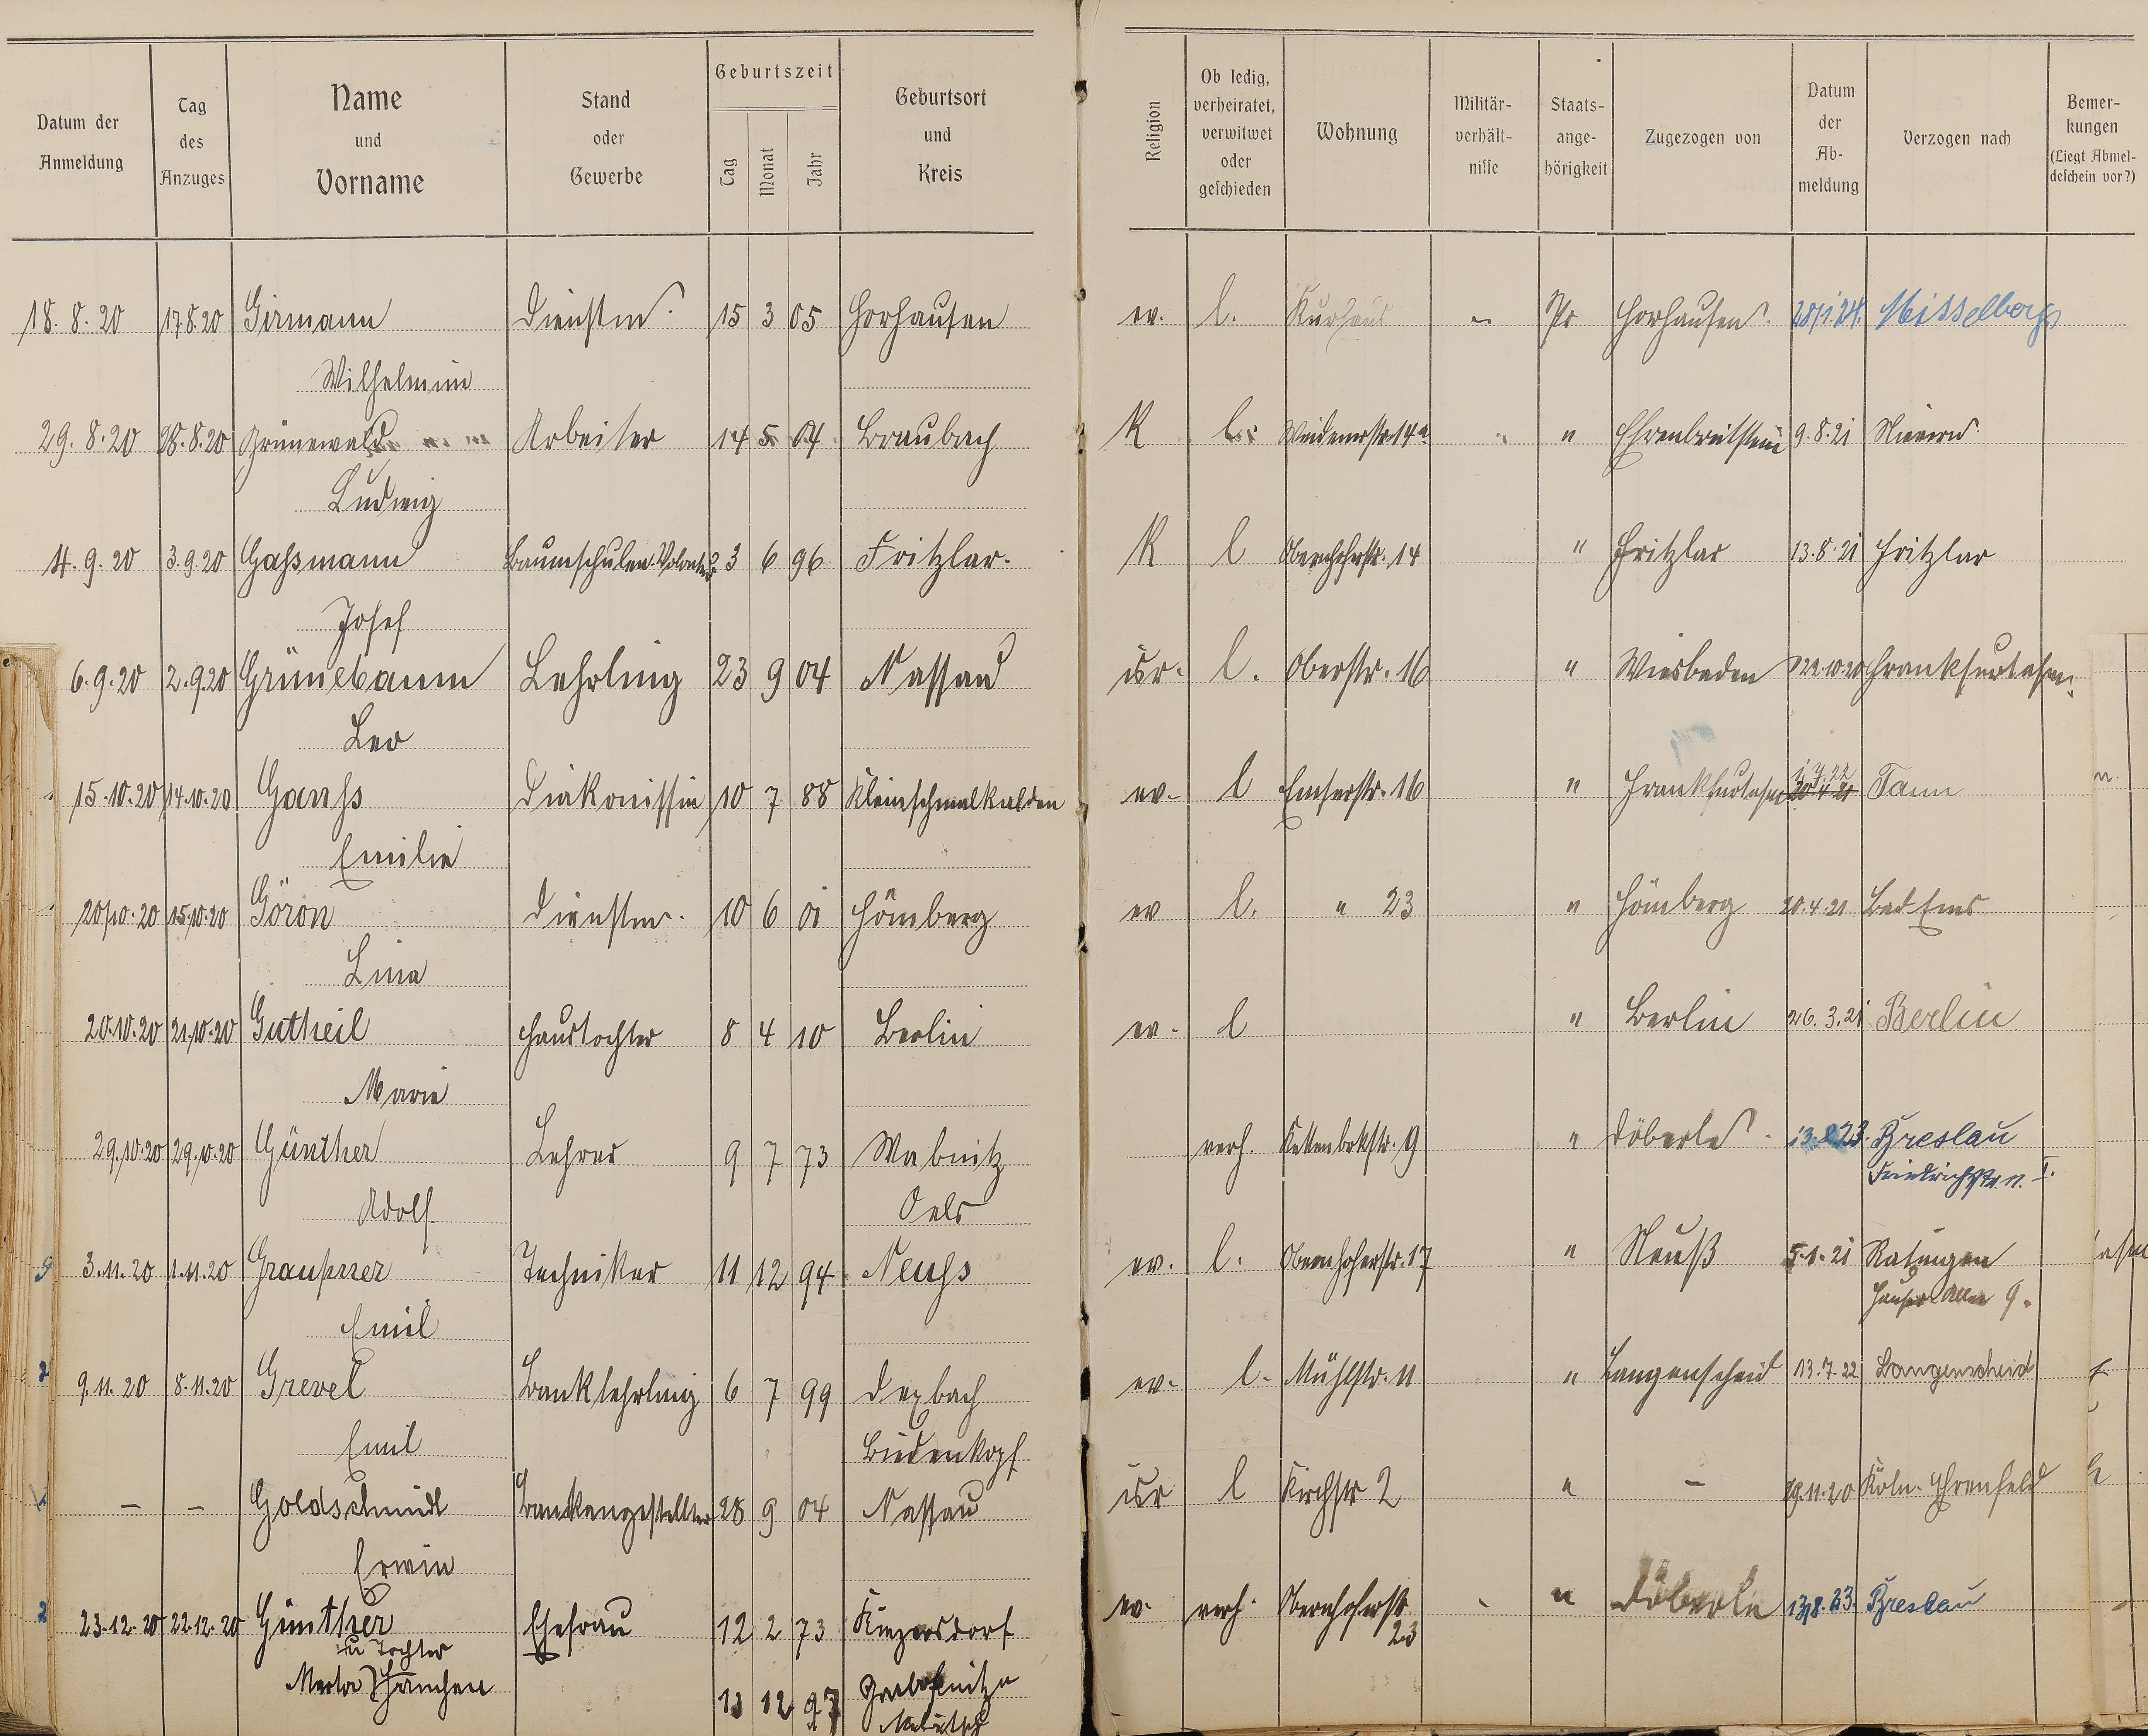 Datum der Anmeldung | Tag des Anzuges | Name und Vorname | Stand oder Gewerbe | Geburtszeit Tag Monat Jahr | Geburtsort und Kreis | Religion | Ob ledig, verheiratet, verwitwet oder geschieden | Wohnung | Militär-verhält-nisse | Staats-ange-hörigkeit | Zugezogen von | Datum der Ab-meldung | Verzogen nach | Bemer-kungen (Liegt Abmel-deschein vor?)
18.8.20 17.8.20 Girmann Dienstm. 15 3 05 Horhausen ev. l. Kurhaus - Pr Horhausen 28/1.24. Misselberg
Wilhelmine
29.8.20 28.8.20 Grünewald Arbeiter 14 5 04 Braubach K l. 14a " Ehrenbreitstein 9.8.21 Nievern
Ludwig
4.9.20 3.9.20 Gaßmann Baumschulen-Volontär 23 6 96 Fritzlar. K l Obernhoferstr. 14 " Fritzlar 13.8.21 Fritzlar
Josef
6.9.20 2.9.20 Grünebaum Lehrling 23 9 04 Nassau isr. l. Oberstr. 16 " Wiesbaden 22.10.20 Frankfurt a/m.
Leo
15.10.20 14.10.20 Ganß Diakonissin 10 7 88 Kleinschmalkalden ev. l Emserstr. 16 " Frankfurt a/m 1.7.22 Tann
Emilie
20/10.20 15.10.20 Göron Dienstm. 10 6 01 Hömberg ev l. " 23 " Hömberg 20.4.21 Bad Ems
Lina
20.10.20 21.10.20 Gutheil Haustochter 8 4 10 Berlin ev. l " Berlin 26.3.21 Berlin
Marie
29.10.20 29.10.20 Günther Lehrer 9 7 73 Wabnitz verh. Kettenbrkstr. 9 " Döberle 13.8.23. Breslau
Friedrichstr. 11. I.
Adolf Oels
3.11.20 1.11.20 Graupner Techniker 11 12 94 Neuß ev. l. Obernhoferstr. 17 " Neuß 5.1.21 Ratingen
9.
Emil
9.11.20 8.11.20 Grevel Banklehrling 6 7 99 Dexbach ev. l. Mühlstr. 11 " Langenscheid 13.7.22 Langenscheid
Emil Biedenkopf
- - Goldschmidt Bankangestellter 28 9 04 Nassau isr l Kirchstr 2 " - 29.11.20 Köln-Ehrenfeld
Erwin
23.12.20 22.12.20 Günther Ehefrau 12 2 73 ev. verh. Obernhoferstr 23 " Döberle 13.8.23. Breslau
u Tochter
Marta Hänchen 13 12 97